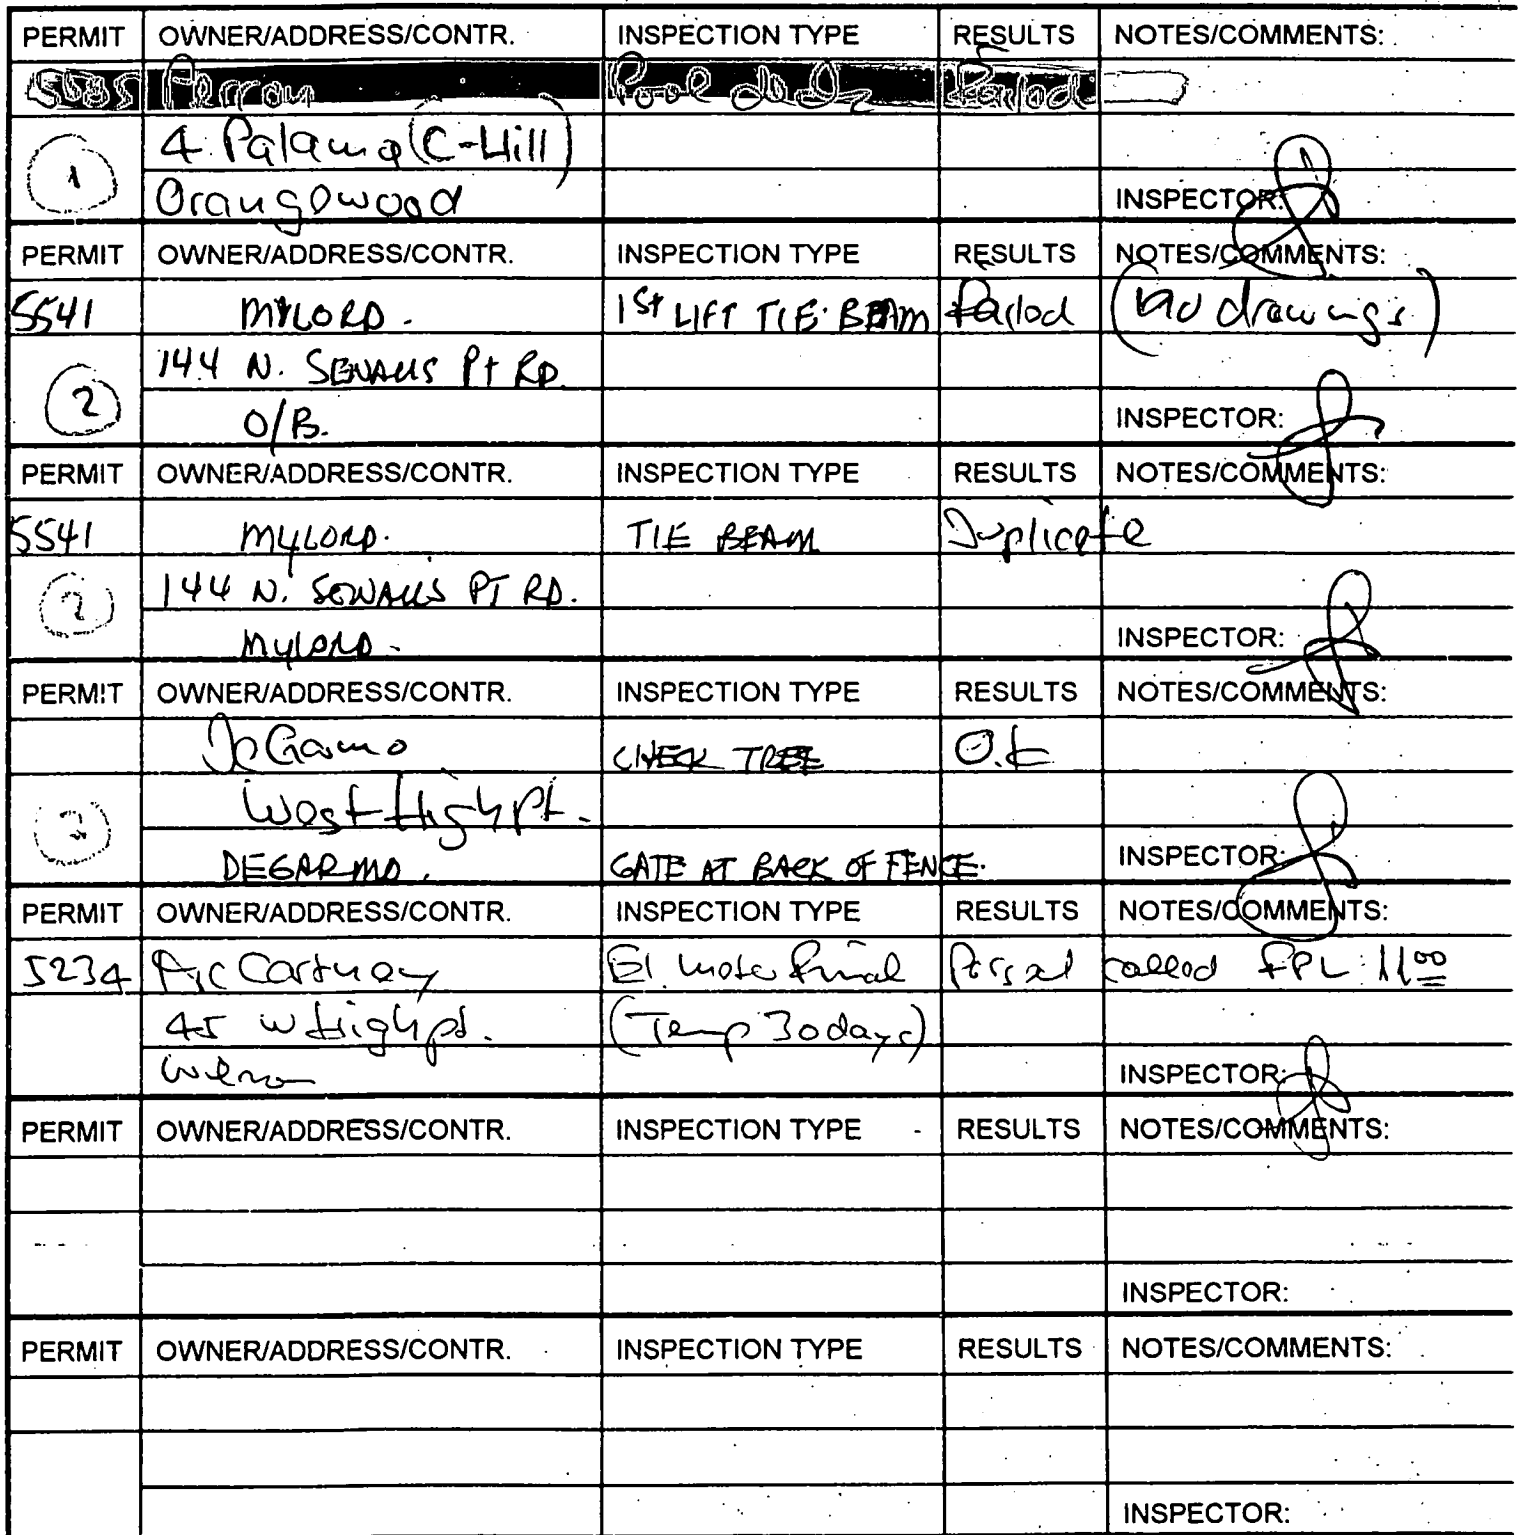 PERMIT OWNER/ADDRESS/CONTR. INSPECTION TYPE RESULTS NOTES/COMMENTS:
Perron Pool Failed
4 Palama (C-Hill)
1
Orangewood INSPECTOR:
PERMIT OWNER/ADDRESS/CONTR. INSPECTION TYPE RESULTS NOTES/COMMENTS:
5541 MYLORD. 1st LIFT TIE BEAM Failed (no drawings)
144 N. SEWALLS Pt RD.
2
O/B. INSPECTOR:
PERMIT OWNER/ADDRESS/CONTR. INSPECTION TYPE RESULTS NOTES/COMMENTS:
5541 MYLORD. TIE BEAM Duplicate
144 N. SEWALLS PT RD.
2
MYLORD. INSPECTOR:
PERMIT OWNER/ADDRESS/CONTR. INSPECTION TYPE RESULTS NOTES/COMMENTS:
DeGarmo CHECK TREE O.K
West High Pt.
DEGARMO. GATE AT BACK OF FENCE. INSPECTOR:
PERMIT OWNER/ADDRESS/CONTR. INSPECTION TYPE RESULTS NOTES/COMMENTS:
5234 McCartney El. meter final Passed called FPL 11 00
45 W High pt. (Temp 30 days)
INSPECTOR:
PERMIT OWNER/ADDRESS/CONTR. INSPECTION TYPE RESULTS NOTES/COMMENTS:
INSPECTOR:
PERMIT OWNER/ADDRESS/CONTR. INSPECTION TYPE RESULTS NOTES/COMMENTS:
INSPECTOR: